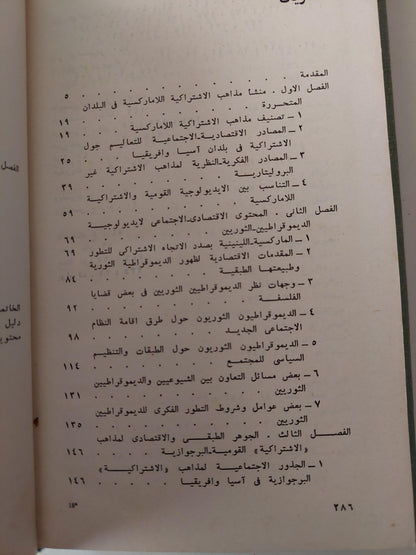 المقدمة . . . . . . . . . . ٥
الفصل الاول . منشأ مذاهب الاشتراكية اللاماركسية فى البلدان
المتحررة . . . . . . . . . . ١٩
١ – تصنيف مذاهب الاشتراكية اللاماركسية . . . ١٩
٢ – المصادر الاقتصادية-الاجتماعية للتعاليم حول
الاشتراكية فى بلدان آسيا وافريقيا . . . . ٢٥
٣ – المصادر الفكرية-النظرية لمذاهب الاشتراكية غير
البروليتارية . . . . . . . . . ٣٩
٤ – التناسب بين الايديولوجية القومية والاشتراكية
اللاماركسية . . . . . . . . . ٥٩
الفصل الثانى . المحتوى الاقتصادى-الاجتماعى لايديولوجية
الديموقراطيين-الثوريين . . . . . . . ٦٩
١ – الماركسية-اللينينية بصدد الاتجاه الاشتراكى للتطور ٦٩
٢ – المقدمات الاقتصادية لظهور الديموقراطية الثورية
وطبيعتها الطبقية . . . . . . . . ٨٤
٣ – وجهات نظر الديموقراطيين الثوريين فى بعض قضايا
الفلسفة . . . . . . . . . . ٩٢
٤ – الديموقراطيون الثوريون حول طرق اقامة النظام
الاجتماعى الجديد . . . . . . . . ٩٨
٥ – الديموقراطيون الثوريون حول الطبقات والتنظيم
السياسى للمجتمع . . . . . . . . ١١٤
٦ – بعض مسائل التعاون بين الشيوعيين والديموقراطيين
الثوريين . . . . . . . . . ١٣١
٧ – بعض عوامل وشروط التطور الفكرى للديموقراطيين
الثوريين . . . . . . . . . ١٣٥
الفصل الثالث . الجوهر الطبقى والاقتصادى لمذاهب
«الاشتراكية» القومية-البرجوازية . . . . . ١٤٦
١ – الجذور الاجتماعية لمذاهب «الاشتراكية»
البرجوازية فى آسيا وافريقيا . . . . . ١٤٦
18*
٢٨٦
الفصل
دليل